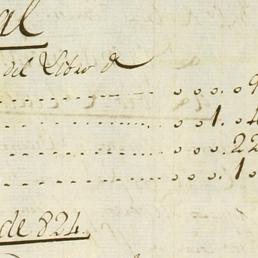 al
del Libro d
. . . . . . . . . . . . . . . . . . . . . o o o . 9
. . . . . . . . . . . . . . . . . . . . . o 1 . 4
. . . . . . . . . . . . . . . . . . . . . o o . 22
. . . . . . . . . . . . . . . . . . . . . o o . 1 o
de 824.